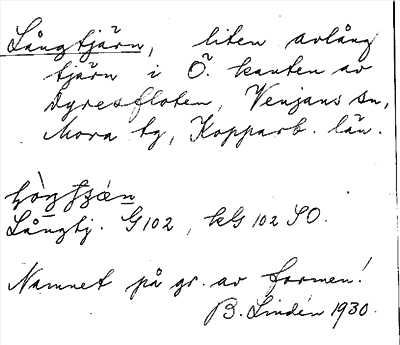 Långtjärn, liten avlång
tjärn i Ö. kanten av
Dyresfloten, Venjans sn,
Mora tg, Kopparb. län.
Långtj. G102, kG 102 SO.
Namnet på gr. av formen!
B. Lindén 1930.